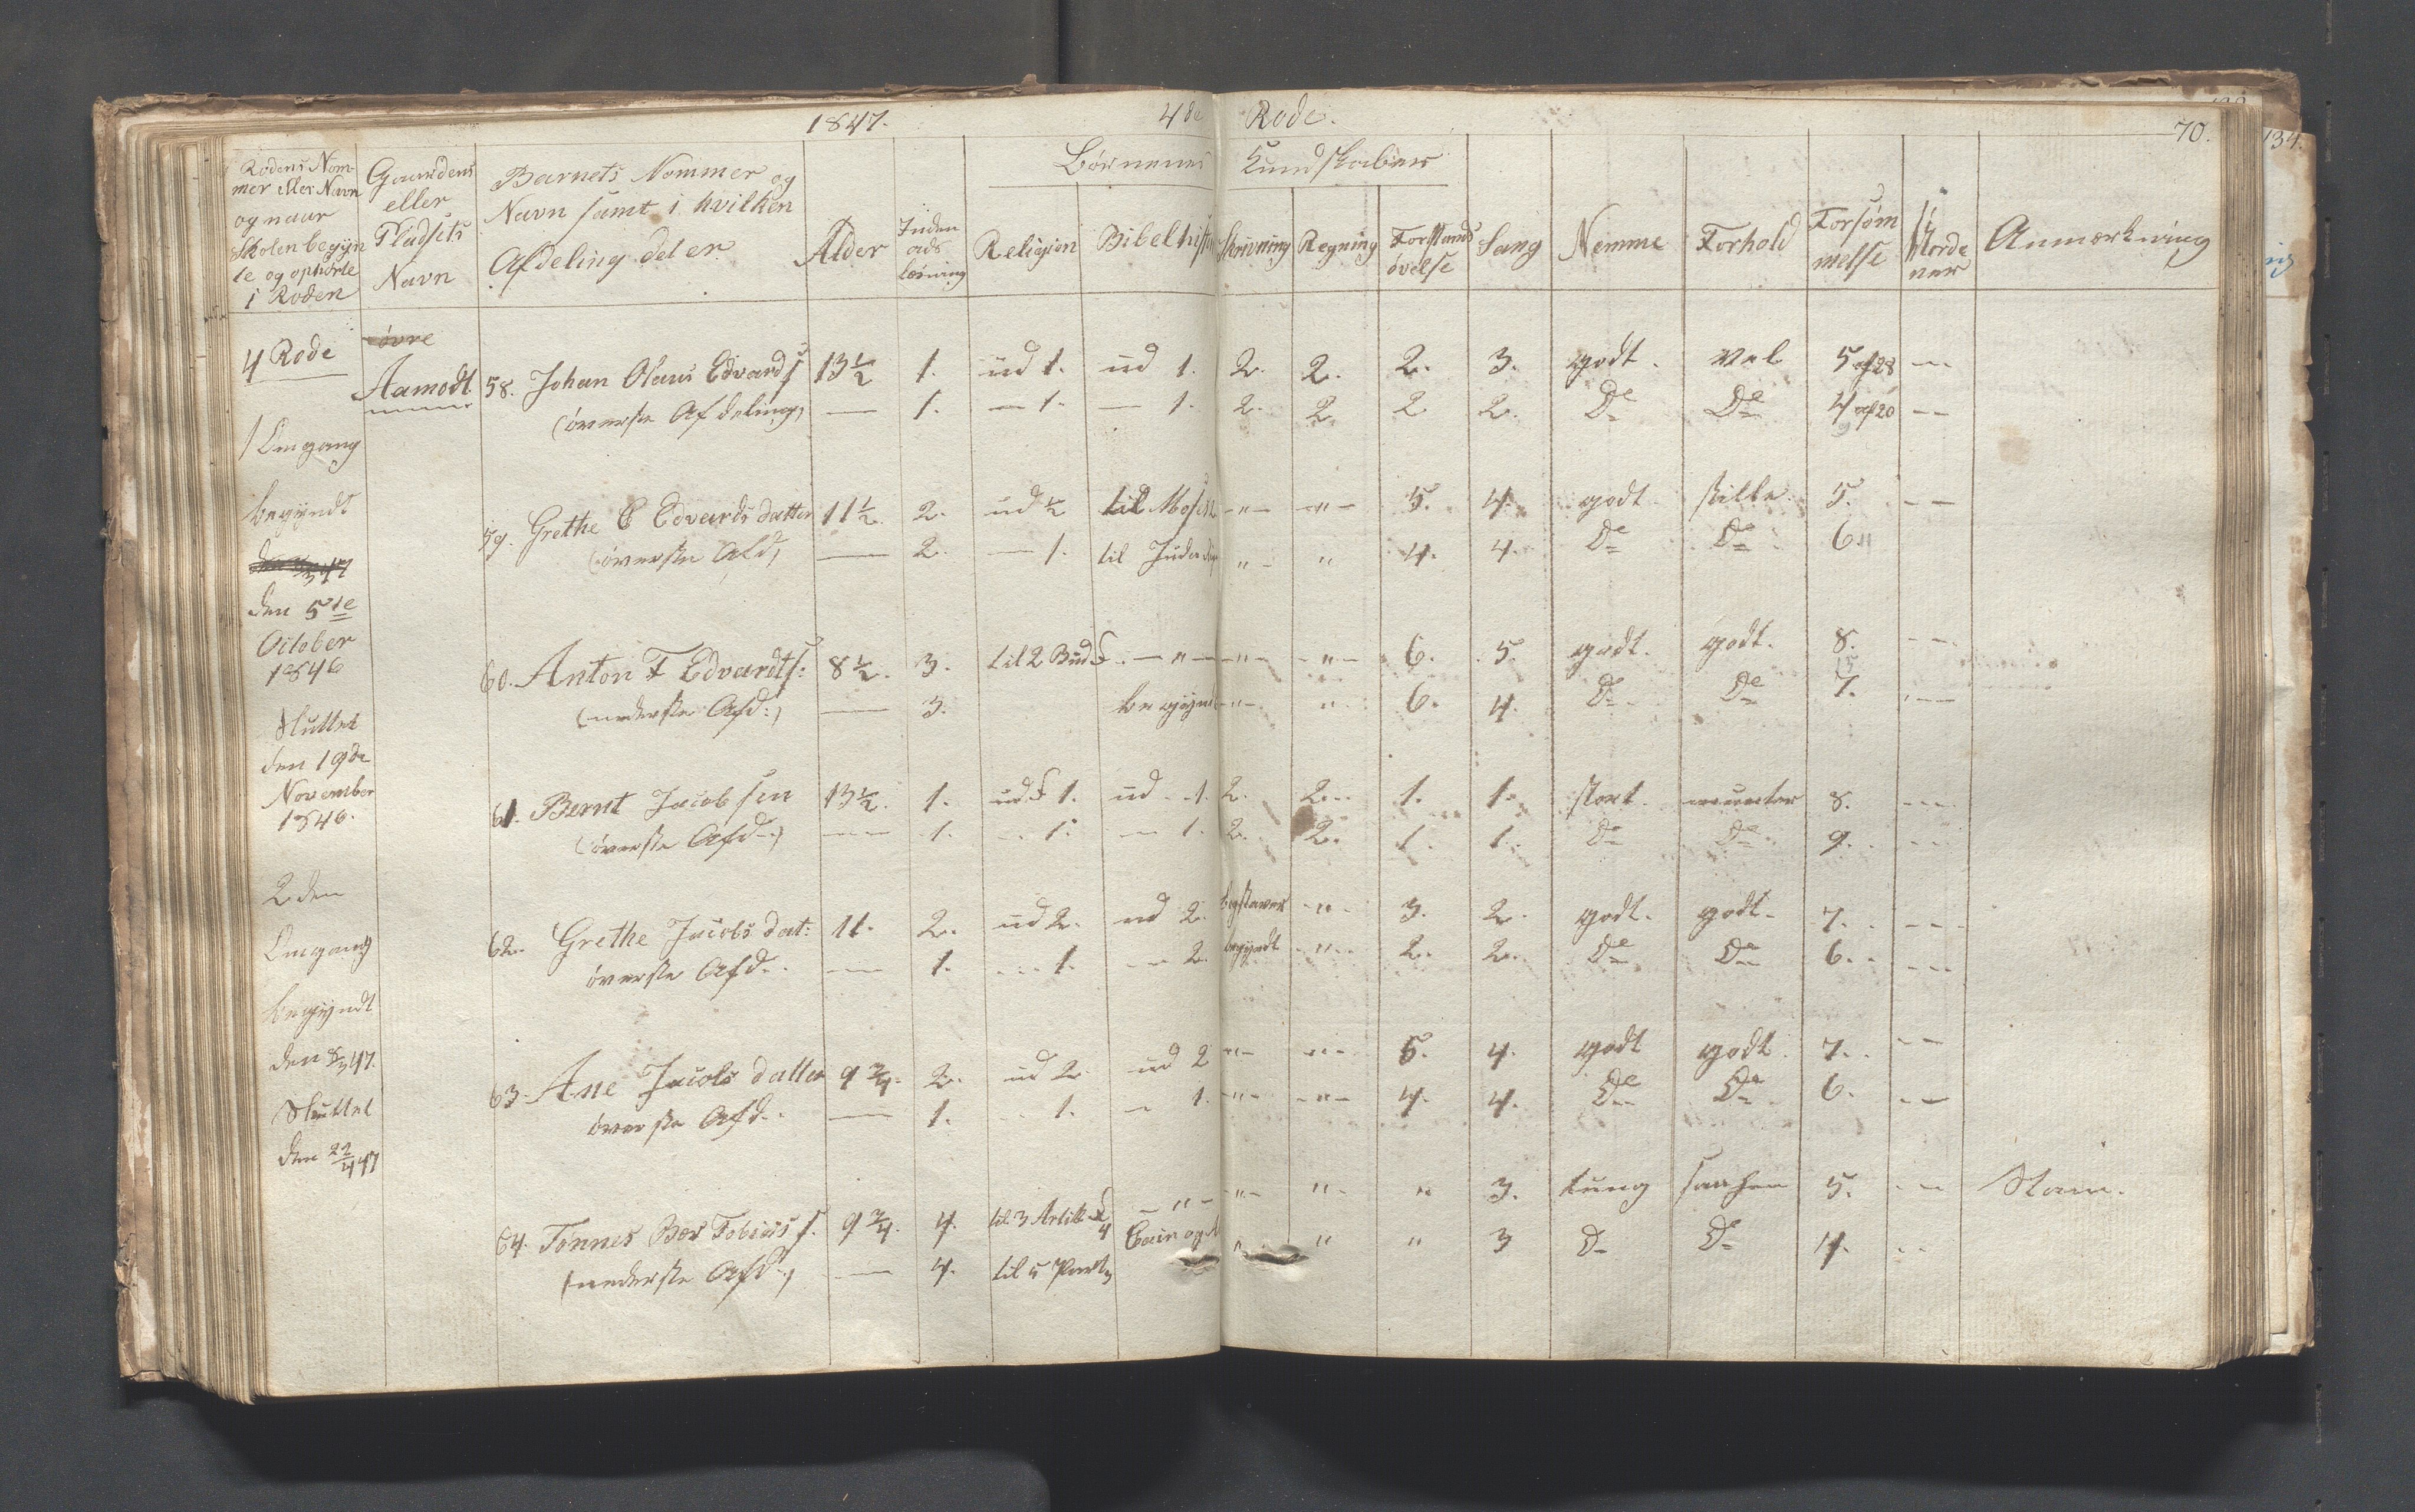 1847. 4de Rode. 70. 134.
Rodens Nom-
mer eller Navn
og naar
Skolen begyn
te og ophørte
i Roden
Gaardens
eller
Pladsets
Navn
Barnets Nommer og
Navn samt i hvilken
Afdeling det er
Alder
Inden
ads
læsning
Børnenes Kundskaber
Religion Bibelhist Skrivning Regning
Forstands
øvelse
Sang Nemme Forhold
Forsøm
melse
Anmærkning
4 Rode
øvre
Aamodt 58. Johan Olaus Edvards 13½ 1. ud 1. ud 1. 2. 2. 2. 3. godt. vel 5 af 28 —
(øverste Afdeling) — 1. — 1. — 1. 2. 2. 2 2. De De 4 af 20 — —
1 Omgang
begyndt
59. Grethe E Edvardsdatter 11½. 2. ud ½ til Moses — " — — " — 5. 4. godt stille. 5. — —
(øverste Afd) — 2. — 1. til Juda " — " 4. 4. De De 6 "
den 5te
October
1846
60. Anton F Edvardts: 8½. 3. til 2 Bud — " — — " — — " — 6. 5. godt. godt. 8. — —
(nederste Afd:) — 3. begynd — " — " 6. 4. De De 7. — —
Sluttet
den 19de
November
1846.
61. Bernt Jacobsen 13½. 1. ud 1. ud 1. 2. 2. 1. 1. stort. munter 8. — —
(øverste Afd.) — 1. — 1. — 1. 2. 2. 1. 1. De De 9. — —
2den
Omgang
62. Grethe Jacobsdat: 11. 2. ud 2. ud 2. bogstaver — " — 3. 2. godt. godt. 7. — —
øverste Afd. — 1. — 1. — 2. begyndt — " — 2. 2. De De 6. — —
begyndt
den 8/3 47.
63. Ane Jacobsdatter 9¾. 2. ud 2. ud 2 — " — — " — 5. 4. godt godt 7. — —
øverste Afd. — 1. — 1. — 1. — " — — " — 4. 4. De De 6. — —
Sluttet
den 22/4 47
64. Tønnes Bor Tobias s. 9¾. 4. til 3 Artik 4 — " — — " — " " 3. tung 5. — —
(nederste Afd.) — 4. til 5 Part Cain og " " " 3 De De 4. — —